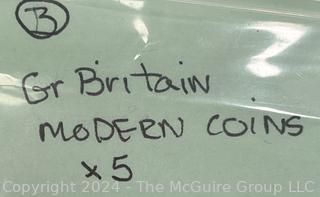 B
Gr Britain
MODERN COINS
x5
Copyright 2024 - The McGuire Group LLC